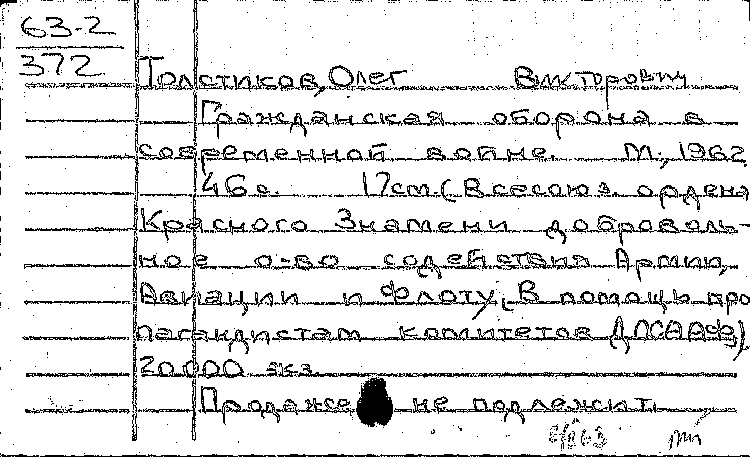 63-2
372
Толстиков, Олег Викторович
Гражданская оборона в
современной войне. М., 1962
46 с. 17см. (Всесоюз. ордена
Красного Знамени доброволь-
ное о-во содействия Армии,
Авиации и Флоту. В помощь про
пагандистам комитетов ДОСААФ).
20000 экз.
Продаже не подлежит.